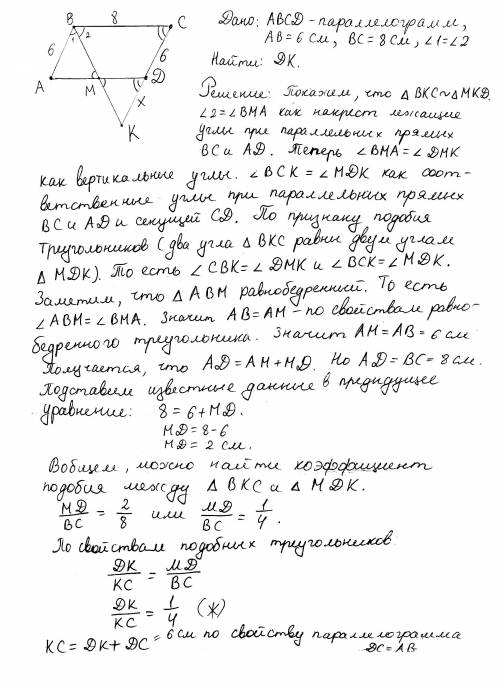 B 8 C
6 1 2 6
A M D
x
K
Дано: ABCD - параллелограмм,
AB = 6 см, BC = 8 см, ∠1 = ∠2
Найти: DK.
Решение: Покажем, что △BKC ~ △MKD.
∠2 = ∠BMA как накрест лежащие
углы при параллельных прямых
BC и AD. Теперь ∠BMA = ∠DMK
как вертикальные углы. ∠BCK = ∠MDK как соот-
ветственные углы при параллельных прямых
BC и AD и секущей CD. По признаку подобия
треугольников (два угла △BKC равны двум углам
△MDK). То есть ∠CBK = ∠DMK и ∠BCK = ∠MDK.
Заметим, что △ABM равнобедренный. То есть
∠ABM = ∠BMA. Значит AB = AM - по свойствам равно-
бедренного треугольника. Значит AM = AB = 6 см
Получается, что AD = AM + MD. Но AD = BC = 8 см.
Подставим известные данные в предидущее
уравнение: 8 = 6 + MD.
MD = 8 - 6
MD = 2 см.
Вобщем, можно найти коэффициент
подобия между △BKC и △MDK.
MD/BC = 2/8 или MD/BC = 1/4.
По свойствам подобных треугольников
DK/KC = MD/BC
DK/KC = 1/4 (*)
KC = DK + DC = 6 см по свойству параллелограмма
DC = AB